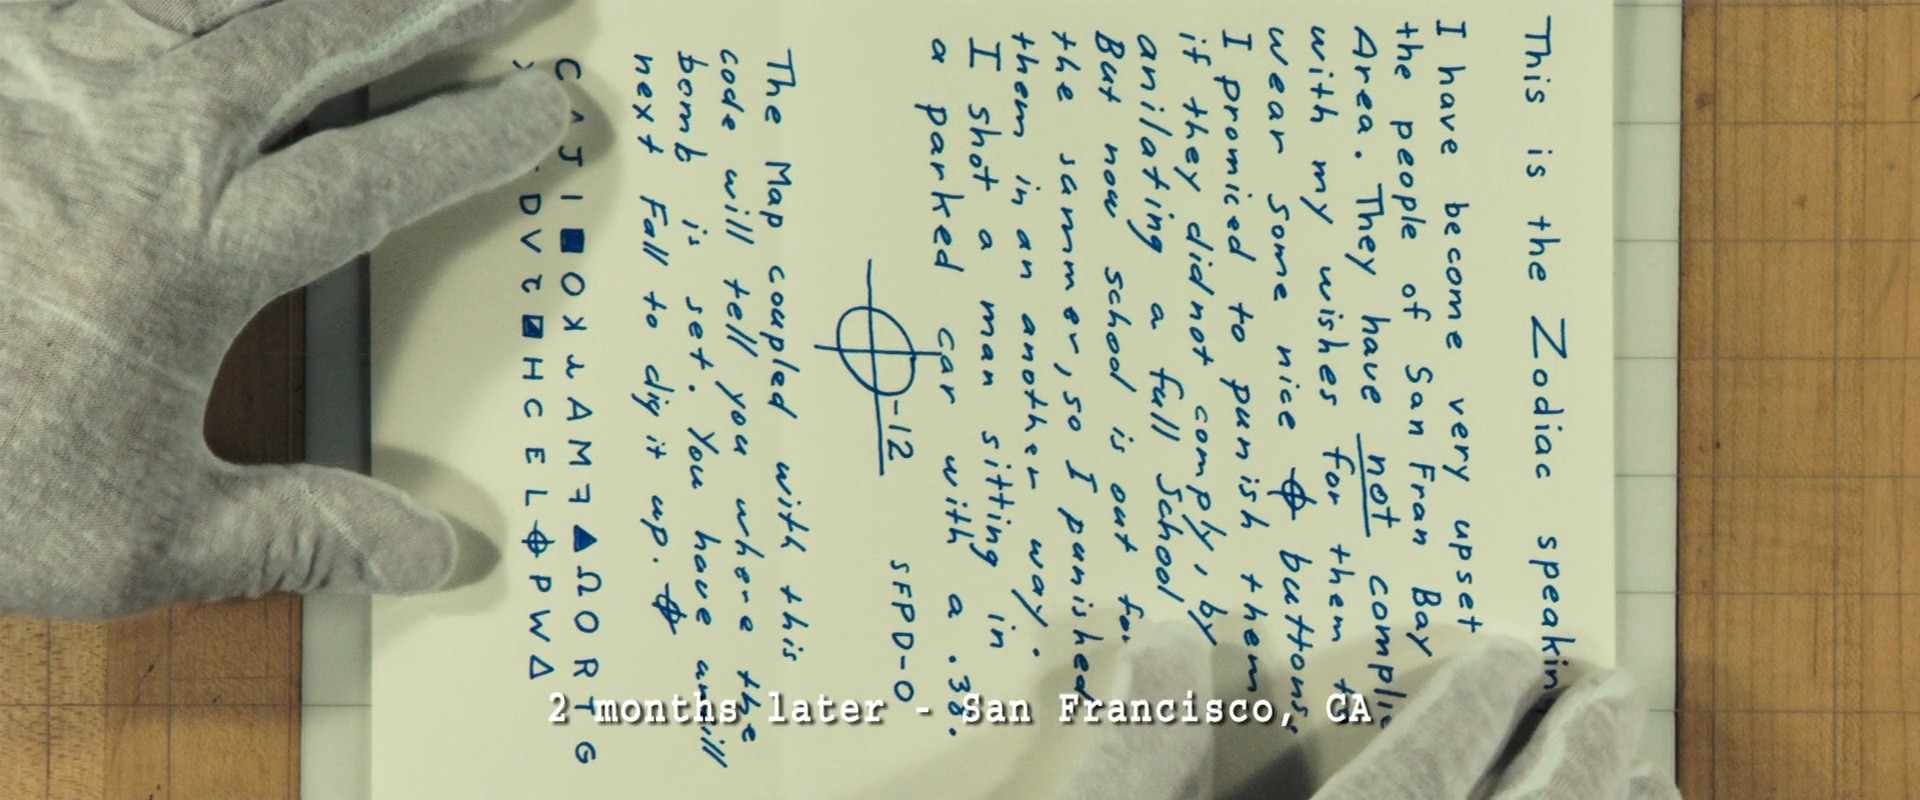 This is the Zodiac speakin
I have become very upset
the people of San Fran Bay
Area. They have not complie
with my wishes for them to
wear some nice ⌖ buttons.
I promiced to punish them
if they did not comply, by
anilating a full School
But now school is out for
the sammer, so I punished
them in an another way.
I shot a man sitting in
a parked car with a .38.
⌖-12 SFPD-0
The Map coupled with this
code will tell you where the
bomb is set. You have antill
next Fall to dig it up. ⌖
2 months later - San Francisco, CA